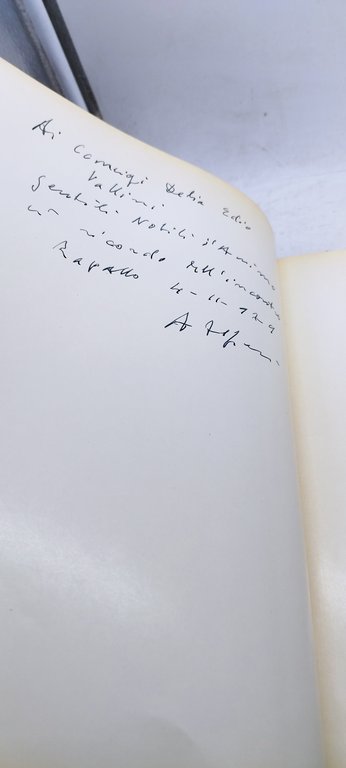 Ai Coniugi Delia Edio
Vallini
Gentili Nobili d'Animo
un ricordo dell'incontro
Rapallo 4-11-129
A